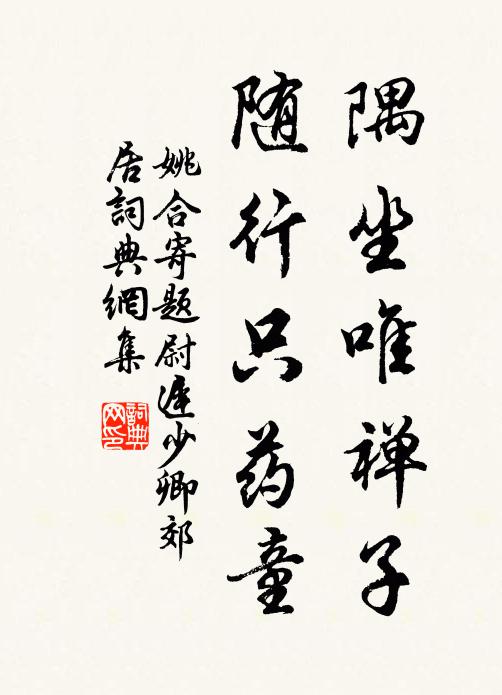 隅坐唯禅子
随行只药童
姚合寄题尉遲少卿郊
居詞典網集
詞典网印